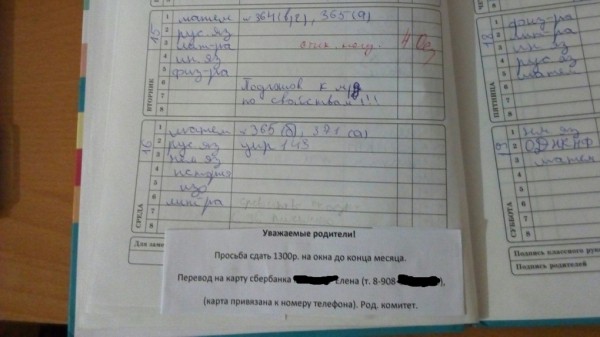 15
ВТОРНИК
1 матем № 364(в,г), 365(а)
2 рус. яз
3 лит-ра
4 ин. яз
5 физ-ра
6
7 по свойствам!!!
8
4
16
СРЕДА
1 матем № 365 (б), 371 (а)
2 рус. яз упр 143
3 нем. яз
4
5 изо
6 лит-ра
7
8
Уважаемые родители!
Просьба сдать 1300р. на окна до конца месяца.
Перевод на карту сбербанка Елена (т. 8-908-),
(карта привязана к номеру телефона). Род. комитет.
18
ПЯТНИЦА
1 физ-ра
2 лит-ра
3 ин. яз
4 рус. яз
5 матем
6
7
8
СУББОТА
1 нем. яз
2 ОДНКНР
3 матем
4
5
6
7
8
Подпись классного рук
Подпись родителей